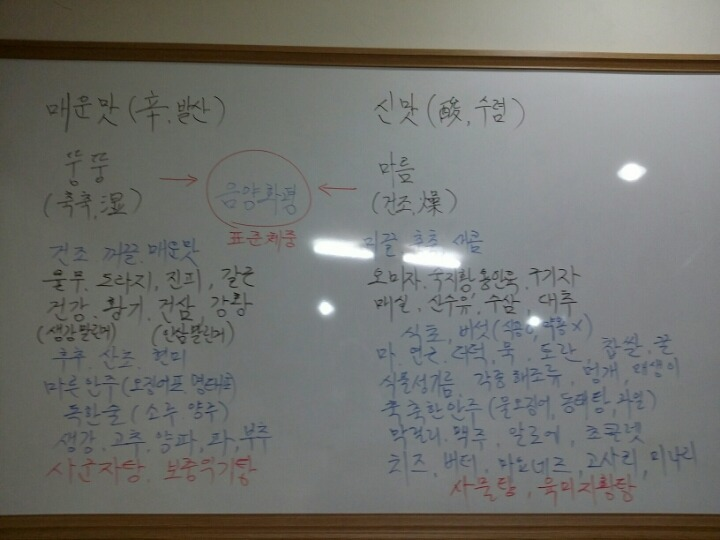 매운맛 (辛, 발산)
뚱뚱
(축축, 湿)
음양화평
표준체중
건조 꺼끌, 매운맛
물무, 도라지, 진피, 갈근
건강, 황기, 건삼, 강황
(생강말린거) (인삼말린거)
후추, 산초, 현미
마른안주 (오징어포, 명태포)
독한술 (소주 양주)
생강, 고추, 양파, 파, 부추
사군자탕, 보중익기탕
신맛 (酸, 수렴)
마름
(건조, 燥)
축축 새콤
오미자, 숙지황, 용안육, 구기자
매실, 산수유, 수삼, 대추
식초, 버섯
마, 연근, 더덕, 묵, 토란, 찹쌀, 꿀
식물성기름, 각종 해조류, 멍게, 매생이
축축한안주 (물오징어, 동태탕, 과일)
막걸리, 맥주, 알로에, 초콜렛
치즈, 버터, 마요네즈, 고사리, 미나리
사물탕, 육미지황탕